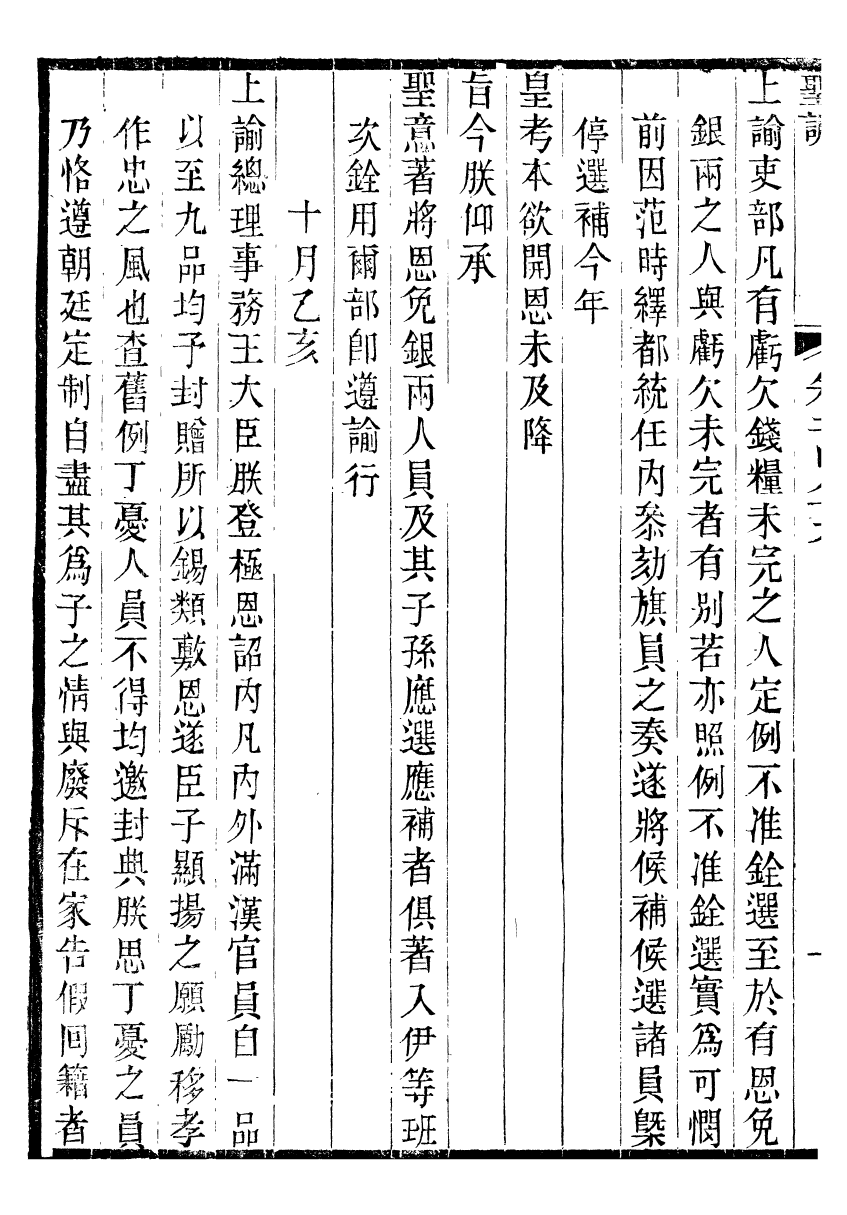 上諭吏部凡有虧欠錢糧未完之人定例不准銓選至於有恩免
銀兩之人與虧欠未完者有别若亦照例不准銓選實爲可憫
前因范時繹都統任内叅劾旗員之奏遂將候補候選諸員槩
停選補今年
皇考本欲開恩未及降
旨今朕仰承
聖意著將恩免銀兩人員及其子孫應選應補者俱著入伊等班
次銓用爾部卽遵諭行
十月乙亥
上諭總理事務王大臣朕登極恩詔内凡内外滿漢官員自一品
以至九品均予封贈所以錫類敷恩遂臣子顯揚之願勵移孝
作忠之風也查舊例丁憂人員不得均邀封典朕思丁憂之員
乃恪遵朝廷定制自盡其爲子之情與廢斥在家告假回籍者